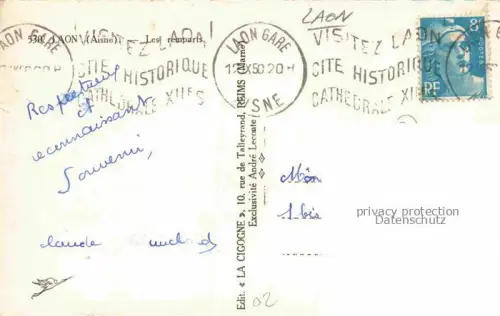 LAON
530. LAON (Aisne). — Les remparts.
LAON GARE
AISNE
VISITEZ LAON
CITE HISTORIQUE
CATHEDRALE XIIE S
LAON GARE
20 H
AISNE
VISITEZ LAON
CITE HISTORIQUE
CATHEDRALE XIIE S
RF
Respectueux
et
reconnaissant
Souvenir,
claude
Edit. « LA CIGOGNE », 10, rue de Talleyrand, REIMS (Marne)
Exclusivité André Lecomte
1 bis
privacy protection
Datenschutz
02